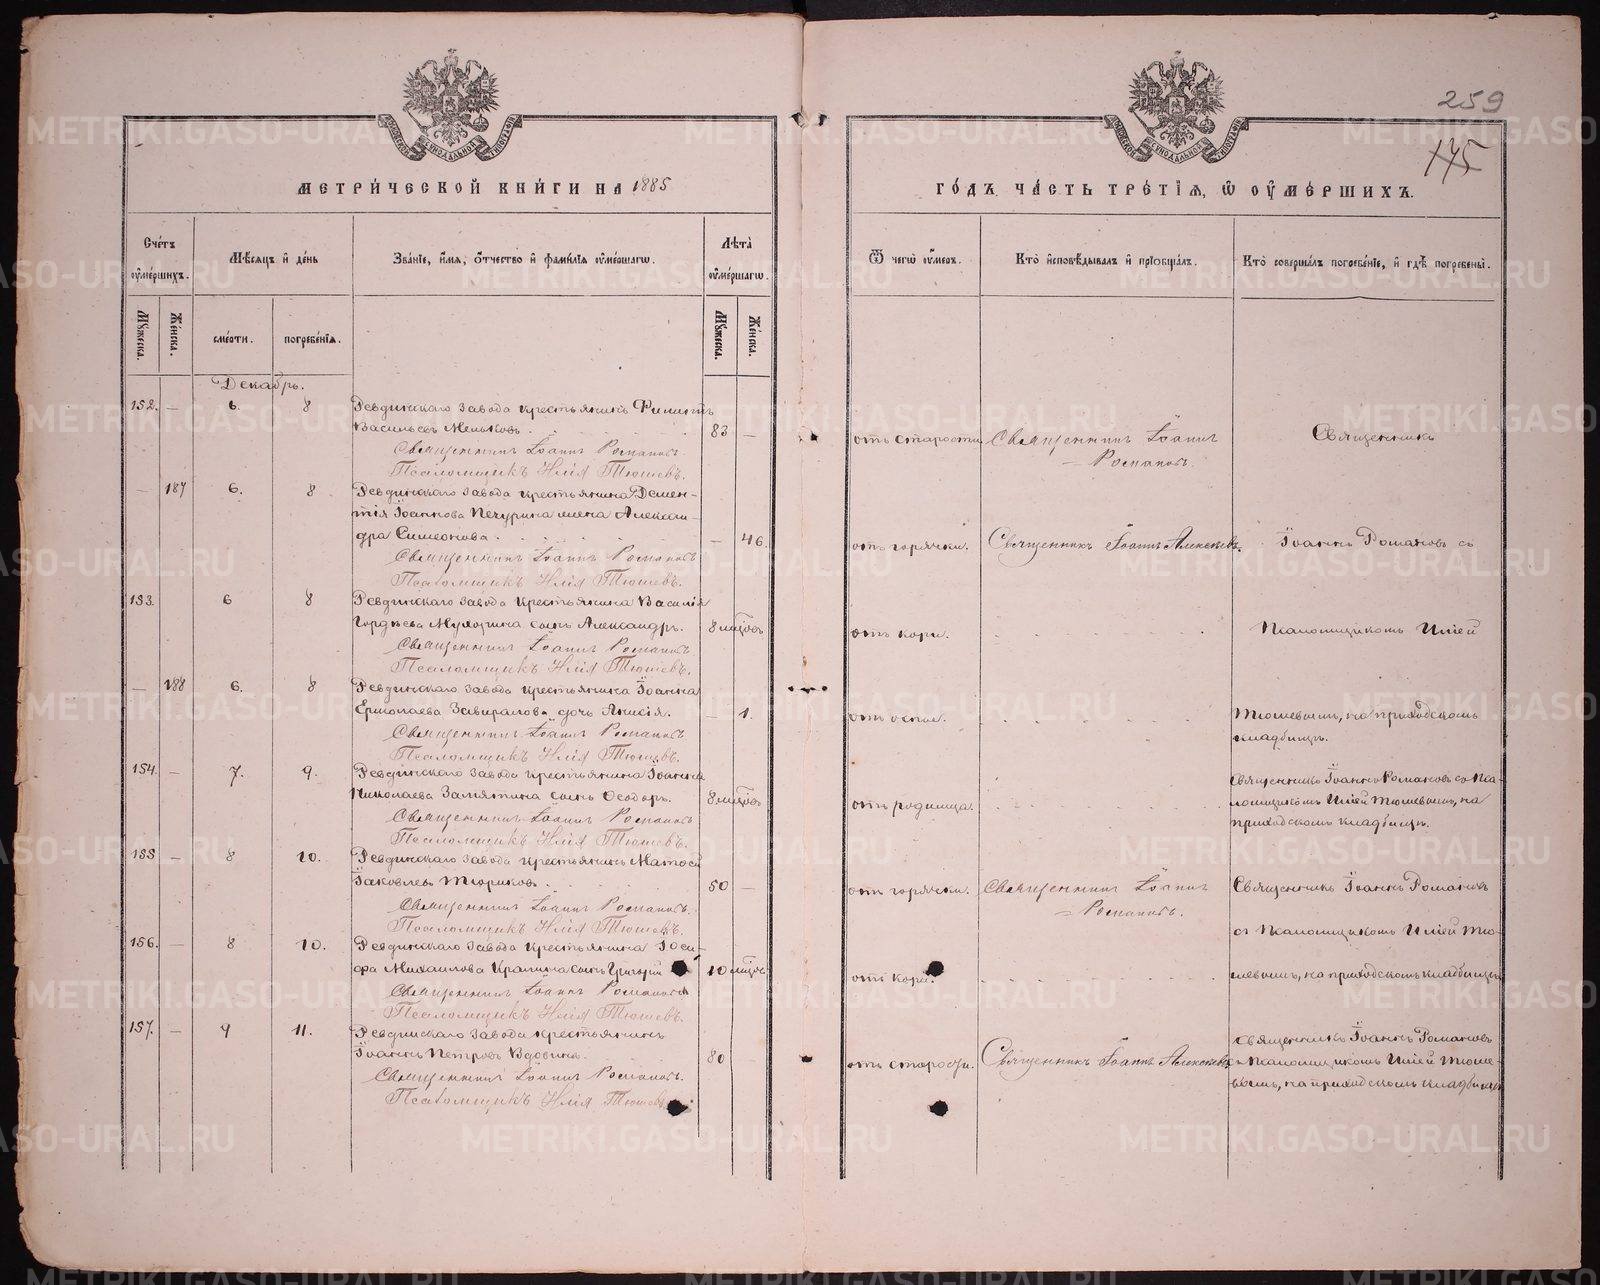 259
175
МЕТРИЧЕСКОЙ КНИГИ НА 1885
ГОДЪ ЧАСТЬ ТРЕТІЯ, Ѡ ОУМЕРШИХЪ.
Счетъ оумершихъ.
Мѣсяцъ и день
Званіе, имя, отчество и фамилія оумершагѡ.
Лѣта оумершагѡ.
Ѿ чегѡ оумеръ.
Кто исповѣдывалъ и пріобщалъ.
Кто совершалъ погребеніе, и гдѣ погребены.
Мужеска.
Женска.
смерти.
погребенія.
Мужеска.
Женска.
Декабрь.
152. — 6. 8 Ревдинскаго завода крестьянинъ Филиппъ
Васильевъ Меньковъ . 83 — отъ старости Священникъ Іоаннъ Романовъ. Священникъ
Священникъ Іоаннъ Романовъ.
Псаломщикъ Илія Тюшевъ.
— 187 6. 8 Ревдинскаго завода крестьянина Демен-
тія Іоаннова Печурина жена Алексан-
дра Симеонова . — 46. отъ горячки. Священникъ Іоаннъ Алексѣевъ. Іоаннъ Романовъ съ
Священникъ Іоаннъ Романовъ
Псаломщикъ Илія Тюшевъ.
153. 6 8 Ревдинскаго завода крестьянина Василія
Гордѣева Мухорина сынъ Александръ. 8 мѣсцовъ отъ кори. Псаломщикомъ Иліей
Священникъ Іоаннъ Романовъ
Псаломщикъ Илія Тюшевъ.
— 188 6. 8 Ревдинскаго завода крестьянина Іоанна
Ермолаева Завиралова дочь Анисія. — 1. отъ оспы. Тюшевымъ, на приходскомъ
кладбищѣ.
Священникъ Іоаннъ Романовъ
Псаломщикъ Илія Тюшевъ.
154. — 7. 9. Ревдинскаго завода крестьянина Іоанна
Николаева Замятина сынъ Ѳеодоръ. 8 мѣсцовъ отъ родимца. Священникъ Іоаннъ Романовъ со Пса-
ломщикомъ Иліей Тюшевымъ, на
приходскомъ кладбищѣ.
Священникъ Іоаннъ Романовъ
Псаломщикъ Илія Тюшевъ.
155 — 8 10. Ревдинскаго завода крестьянинъ Матѳей
Іаковлевъ Тюриковъ . 50 — отъ горячки. Священникъ Іоаннъ Романовъ. Священникъ Іоаннъ Романовъ
Священникъ Іоаннъ Романовъ.
Псаломщикъ Илія Тюшевъ. съ Псаломщикомъ Иліей Тю-
156. — 8 10. Ревдинскаго завода крестьянина Іоси-
фа Михаилова Крапина сынъ Григорій 10 мѣсцовъ отъ кори. шевымъ, на приходскомъ кладбищѣ
Священникъ Іоаннъ Романовъ
Псаломщикъ Илія Тюшевъ.
157. — 9 11. Ревдинскаго завода крестьянинъ
Іоаннъ Петровъ Вдовинъ. 80 отъ старости. Священникъ Іоаннъ Алексѣевъ. Священникъ Іоаннъ Романовъ
съ Псаломщикомъ Иліей Тюше-
вымъ, на приходскомъ кладбищѣ
Священникъ Іоаннъ Романовъ.
Псаломщикъ Илія Тюшевъ
METRIKI.GASO-URAL.RU